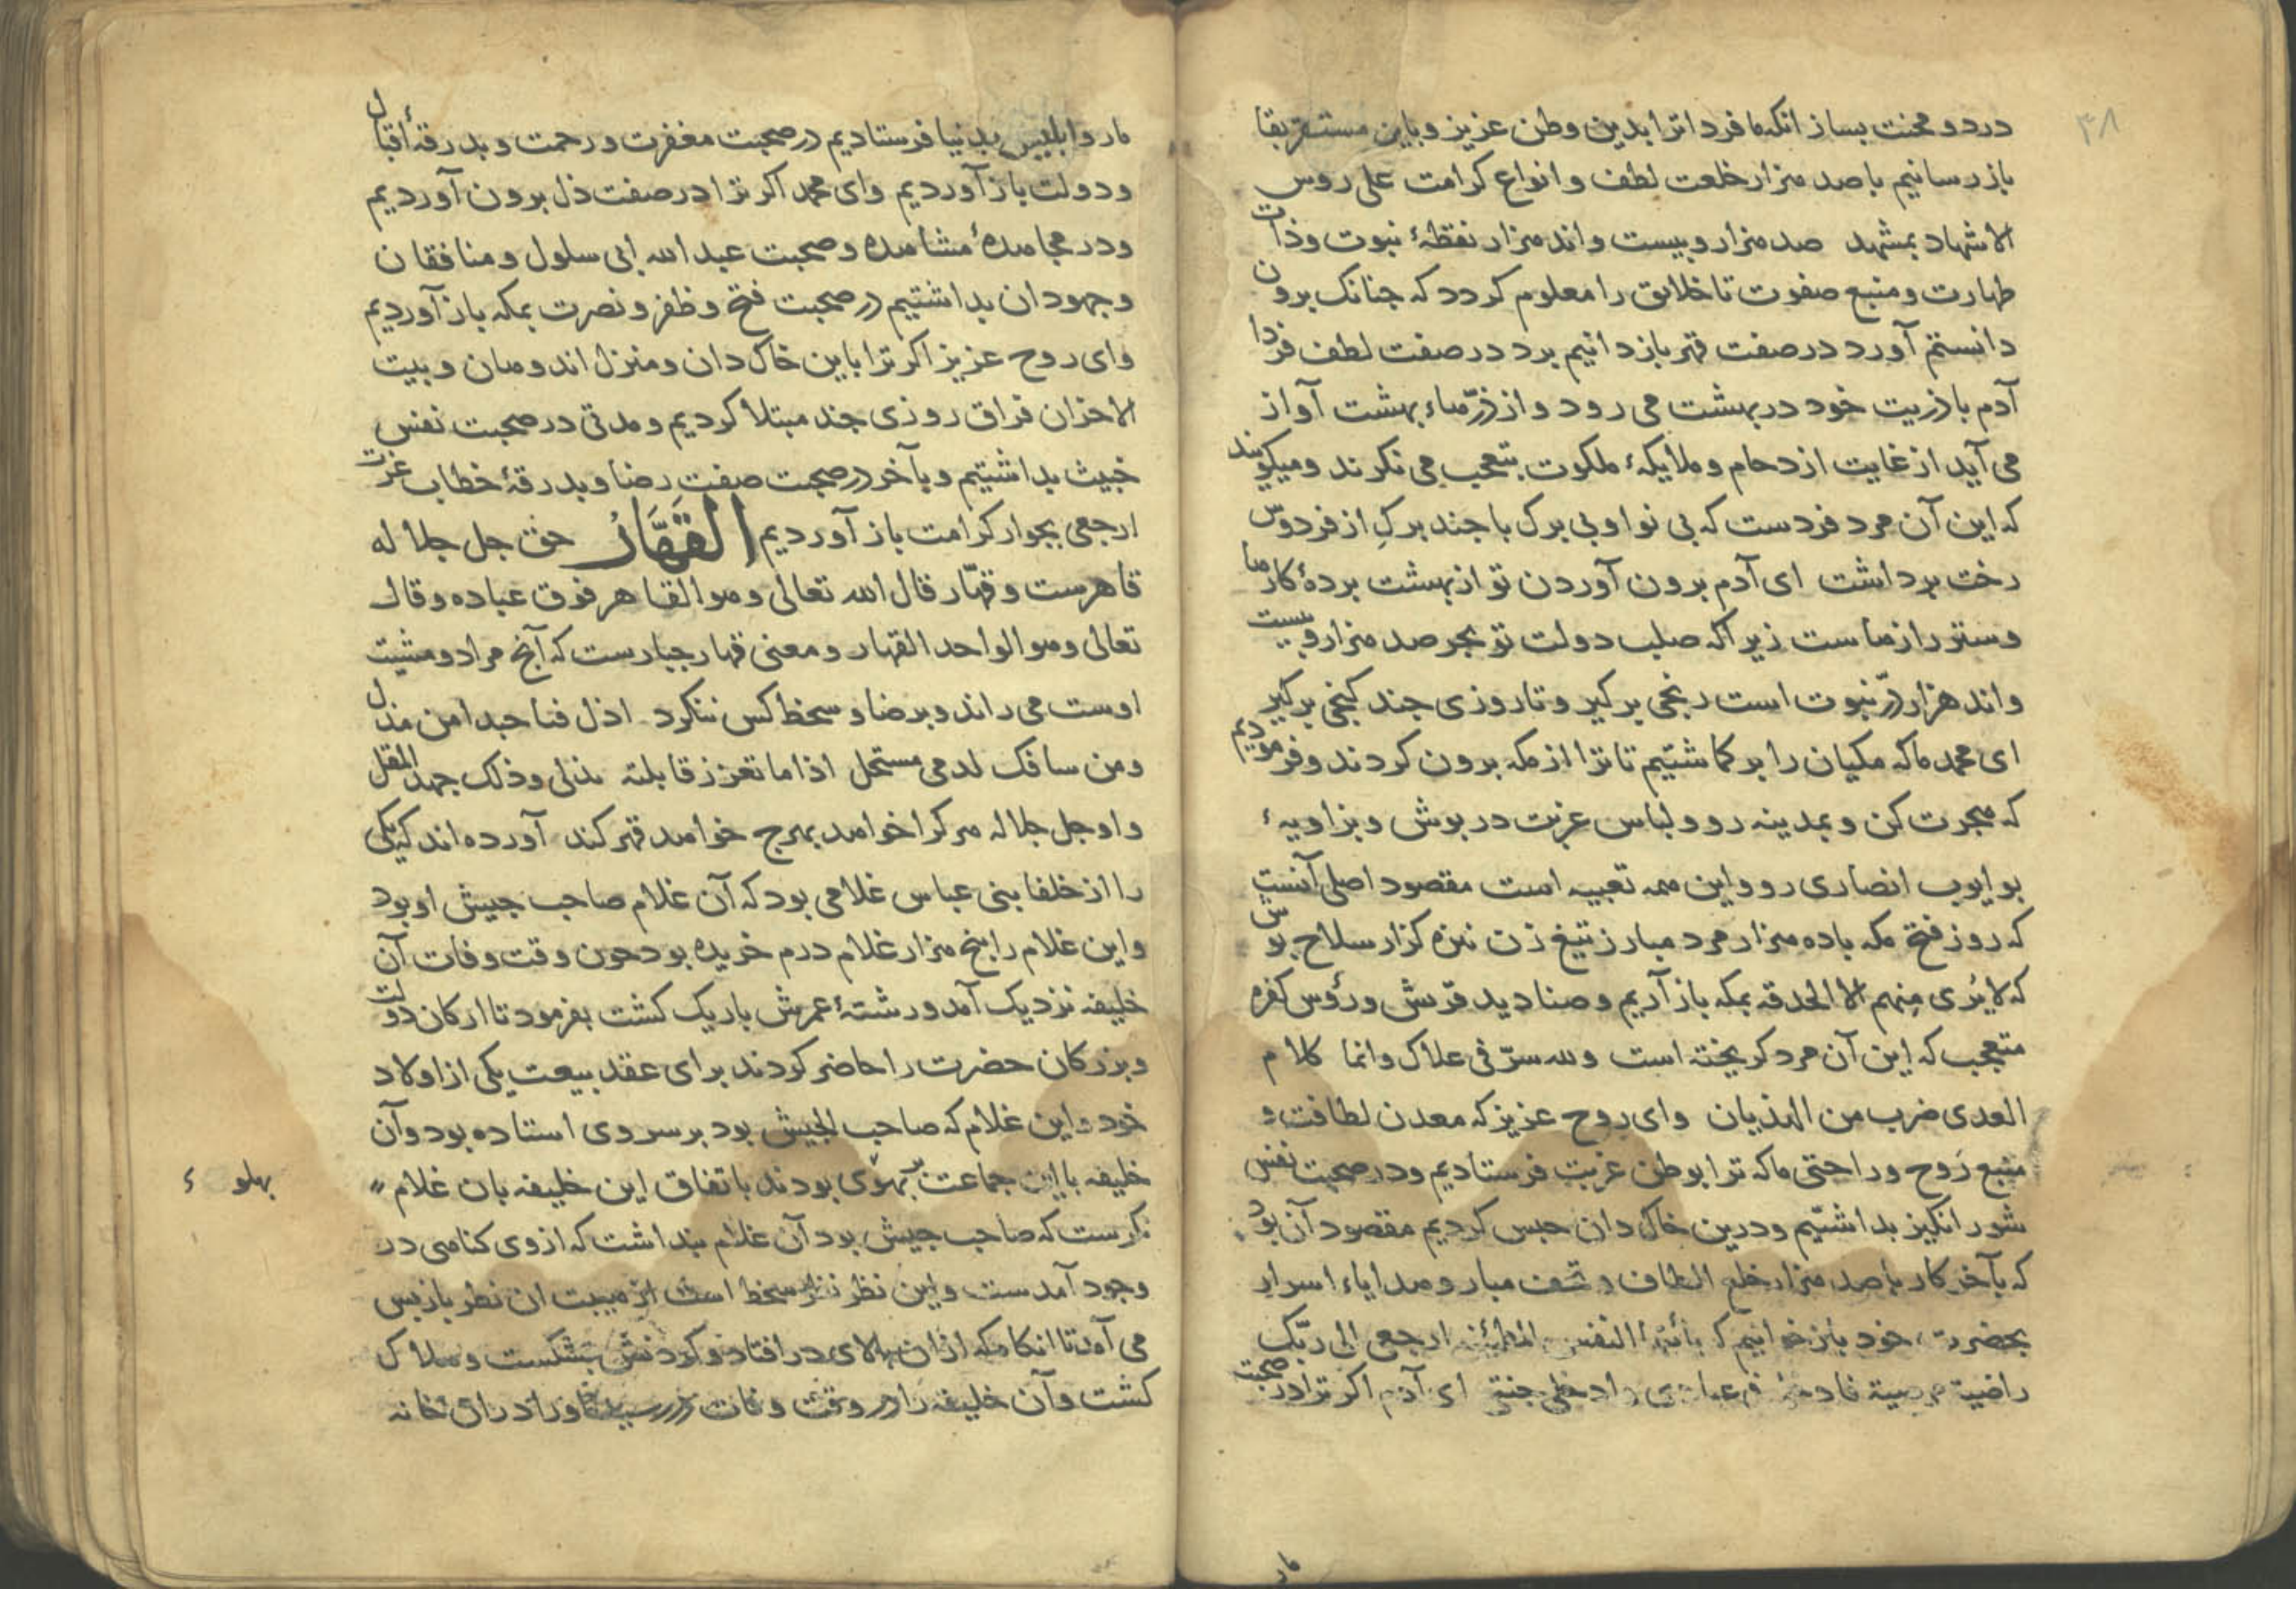 ۳۸
درد و محنت بساز انکه ما فردا ترا بدین وطن عزیز و باین مستقر بقا
باز رسانیم با صد هزار خلعت لطف و انواع کرامت علی روس
الاشهاد بمشهد صد هزار و بیست و اند هزار نقطهٔ نبوت و ذات
طهارت و منبع صفوت تا خلایق را معلوم کردد که جنانک برون
دانستم آورد در صفت قهر باز دانیم برد در صفت لطف فردا
آدم با ذریت خود در بهشت می رود و از ذرّهاء بهشت آواز
می آید از غایت ازدحام و ملایکهٔ ملکوت بتعجب می نکرند و میکویند
که این آن مرد فردست که بی نوا و بی برک با جند برک از فردوس
رخت برداشت ای آدم برون آوردن تو از بهشت بردهٔ کارها
و ستر رازهاست زیرا که صلب دولت تو بحر صد هزار و بیست
و اند هزار درّ نبوت است رنجی برکیر و تا روزی جند کنجی برکیر
ای محمد ما که مکیان را بر کماشتیم تا ترا از مکه برون کردند و فرمودیم
که هجرت کن و بمدینه رو و لباس غربت در بوش و بزاویهٔ
بو ایوب انصاری رو و این همه تعبیه است مقصود اصلی آنست
که روز فتح مکه با ده هزار مرد مبارز تیغ زن نیزه کزار سلاح بوش
که لا یُری مِنهم الا الحدقه بمکه باز آریم و صنادید قریش و رؤس کفره
متعجب که این آن مرد کریخته است ولله سرّ فی علاک وانما کلام
العدی ضرب من الهذیان وای روح عزیز که معدن لطافت و
منبع رَوح و راحتی ما که ترا بوطن غربت فرستادیم و در صحبت نفس
شور انکیز بداشتیم و درین خاک دان حبس کردیم مقصود آن بود
که بآخر کار با صد هزار خلع الطاف و تحف مبار و هدایاء اسرار
بحضرت خود باز خوانیم که یا أیتها النفس المطمئنه ارجعی الی ربّک
راضیة مرضیة فادخلی فی عبادی وادخلی جنتی ای آدم اکر ترا در صحبت
مار
مار و ابلیس بدنیا فرستادیم در صحبت مغفرت و رحمت و بدرقهٔ اقبال
و دولت باز آوردیم وای محمد اکر ترا در صفت ذل برون آوردیم
و در مجاهدهٔ مشاهده و صحبت عبد الله ابی سلول و منافقان
و جهودان بداشتیم در صحبت فتح و ظفر و نصرت بمکه باز آوردیم
وای روح عزیز اکر ترا باین خاک دان و منزل اندوهان و بیت
الاحزان فراق روزی جند مبتلا کردیم و مدتی در صحبت نفس
خبیث بداشتیم و بآخر در صحبت صفت رضا و بدرقهٔ خطاب عزت
ارجعی بجوار کرامت باز آوردیم القَهَّارُ حق جل جلاله
قاهرست و قهّار قال الله تعالی وهو القاهر فوق عباده وقال
تعالی وهو الواحد القهار و معنی قهار جبارست که آنج مراد و مشیت
اوست می راند و برضا و سخط کس ننکرد اذل فنا حبدا من مذل
ومن سافک لدمی مستحل اذا ما تعزز قابلته بذلی وذلک جهد المقل
و او جل جلاله هر کرا خواهد بهرج خواهد قهر کند آورده اند که یکی
را از خلفا بنی عباس غلامی بود که آن غلام صاحب جیش او بود
و این غلام را بنج هزار غلام درم خریده بود جون وقت وفات آن
خلیفه نزدیک آمد و رشتهٔ عمرش باریک کشت بفرمود تا ارکان دولت
و بزرکان حضرت را حاضر کردند برای عقد بیعت یکی از اولاد
خود و این غلام که صاحب الجیش بود بر سر وی استاده بود و آن
خلیفه با این جماعت بر بهلوی بودند باتفاق این خلیفه بان غلام
بهلوء
نکرست که صاحب جیش بود آن غلام بنداشت که از وی کناهی در
وجود آمدست و این نظر نظر سخط است از هیبت ان نظر باز بس
می آمد تا انکاه که از ان بالای در افتاد و کردنش بشکست و هلاک
کشت و آن خلیفه را هم وقت وفات در رسید او را در ان خانه